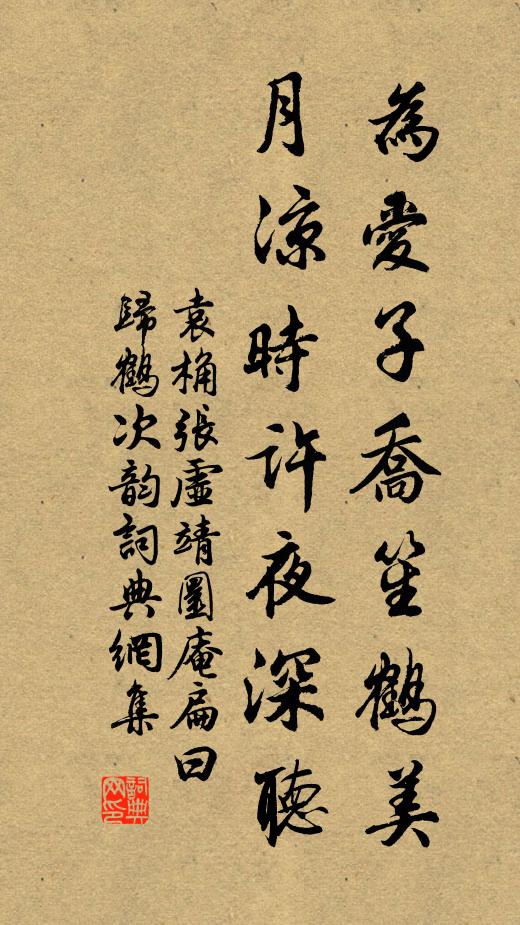 為愛子喬笙鶴美
月涼時許夜深聽
袁桷張虛靖圜庵扁曰
歸鶴次韵詞典網集
詞典
网印